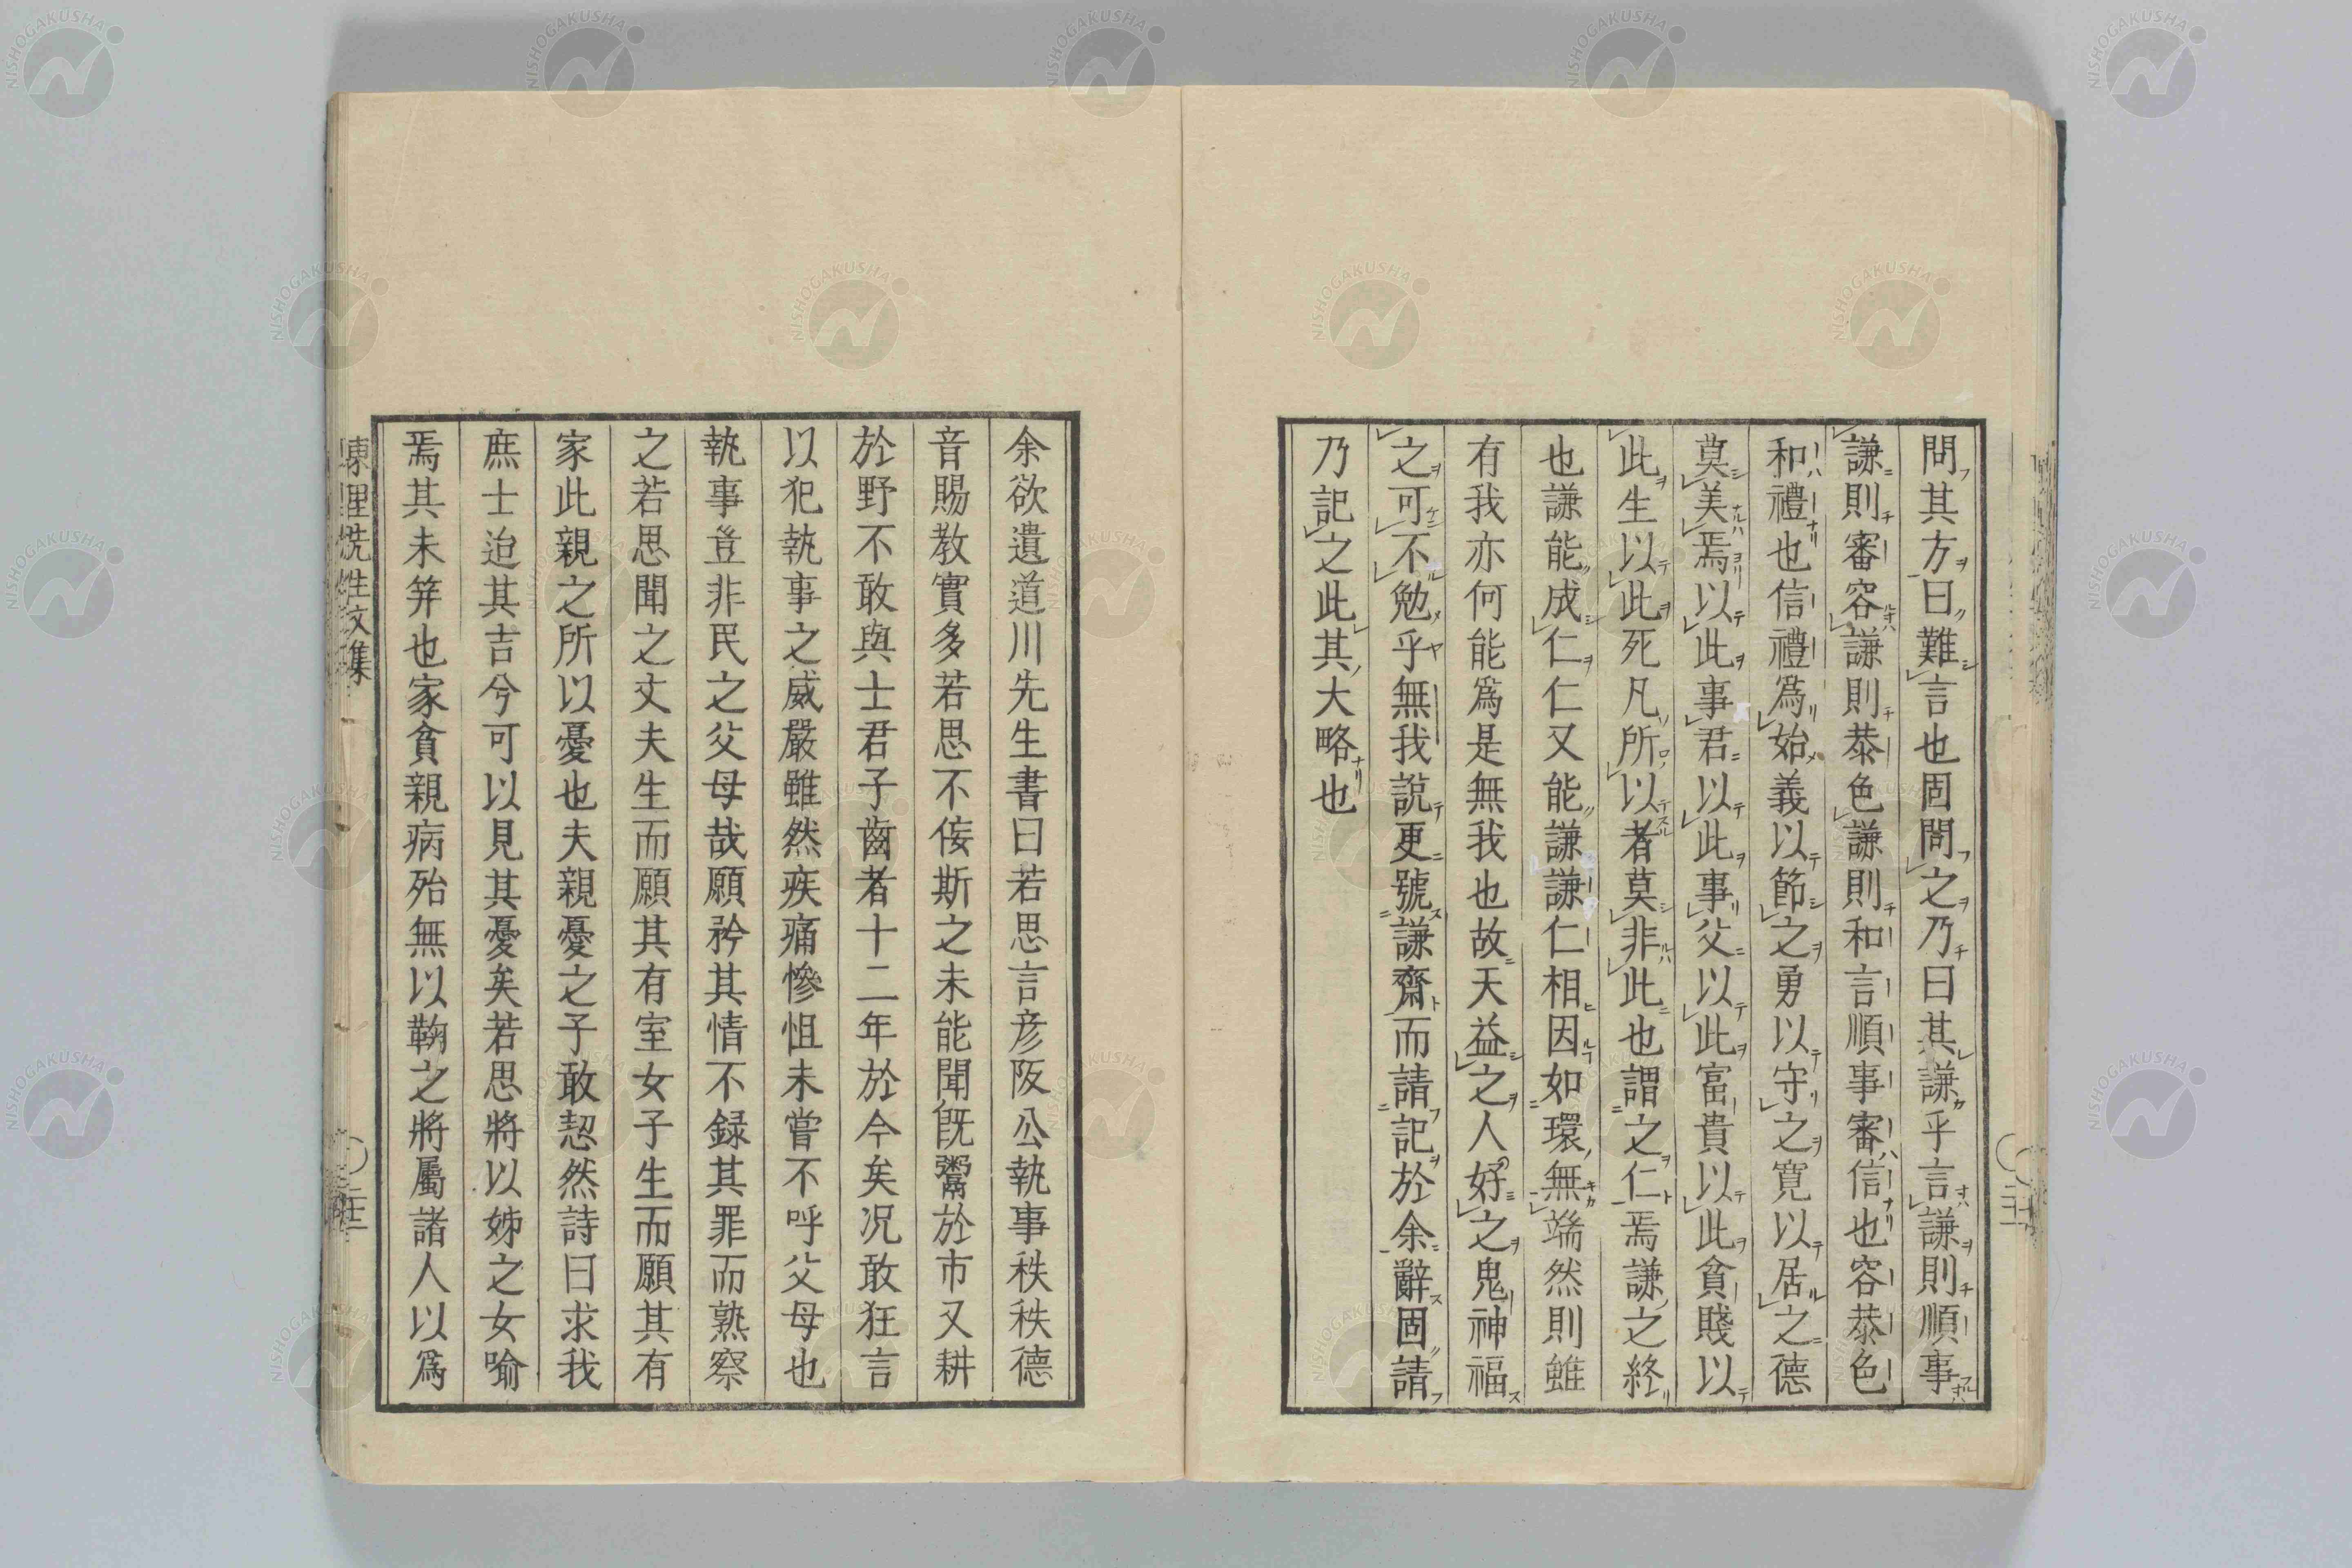 問其方曰難言也固問之乃曰其謙乎言謙則順事
謙則審容謙則恭色謙則和言順事審信也容恭色
和禮也信禮爲始義以節之勇以守之寛以居之德
莫美焉以此事君以此事父以此富貴以此貧賤以
此生以此死凡所以者莫非此也謂之仁焉謙之終
也謙能成仁仁又能謙謙仁相因如環無端然則雖
有我亦何能爲是無我也故天益之人好之鬼神福
之可不勉乎無我說更號謙齋而請記於余辭固請
乃記之此其大略也
余欲遺道川先生書曰若思言彦阪公執事秩秩德
音賜教實多若思不侫斯之未能聞既鬻於市又耕
於野不敢與士君子齒者十二年於今矣況敢狂言
以犯執事之威嚴雖然疾痛慘怛未嘗不呼父母也
執事豈非民之父母哉願矜其情不録其罪而熟察
之若思聞之丈夫生而願其有室女子生而願其有
家此親之所以憂也夫親憂之子敢恝然詩曰求我
庶士迨其吉兮可以見其憂矣若思將以姊之女喩
焉其未笄也家貧親病殆無以鞠之將屬諸人以爲
NISHOGAKUSHA